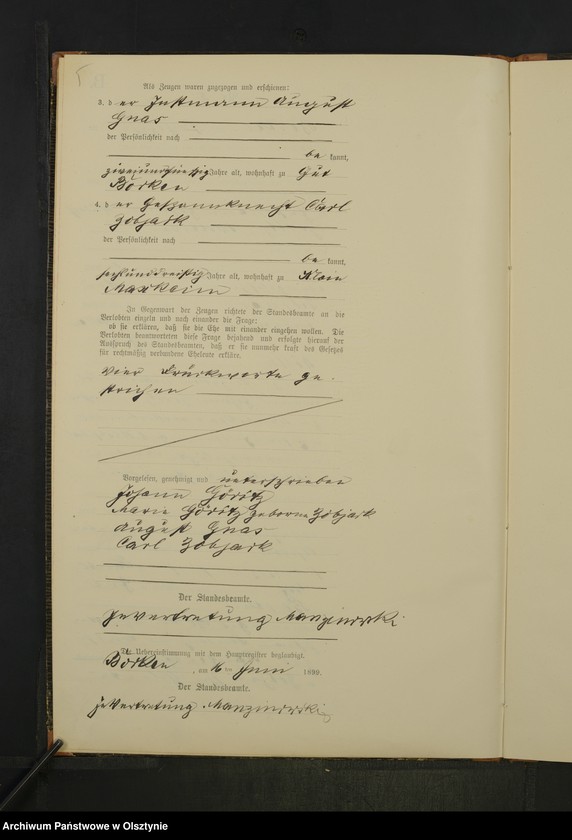 Als Zeugen waren zugezogen und erschienen:
3. der Instmann August
Gnas
der Persönlichkeit nach
be kannt,
zweiundfünfzig Jahre alt, wohnhaft zu Gut
Borken
4. der Gespannknecht Carl
Zobjack
der Persönlichkeit nach
be kannt,
sechsunddreißig Jahre alt, wohnhaft zu Klein
In Gegenwart der Zeugen richtete der Standesbeamte an die
Verlobten einzeln und nach einander die Frage:
ob sie erklären, daß sie die Ehe mit einander eingehen wollen. Die
Verlobten beantworteten diese Frage bejahend und erfolgte hierauf der
Ausspruch des Standesbeamten, daß er sie nunmehr kraft des Gesetzes
für rechtmäßig verbundene Eheleute erkläre.
Vier Druckworte ge-
strichen
Vorgelesen, genehmigt und unterschrieben
Johann Göritz
Marie Göritz geborne Zobjack
August Gnas
Carl Zobjack
Der Standesbeamte.
In Vertretung
Die Uebereinstimmung mit dem Hauptregister beglaubigt.
Borken, am 16 ten Juni 1899.
Der Standesbeamte.
In Vertretung
Archiwum Państwowe w Olsztynie